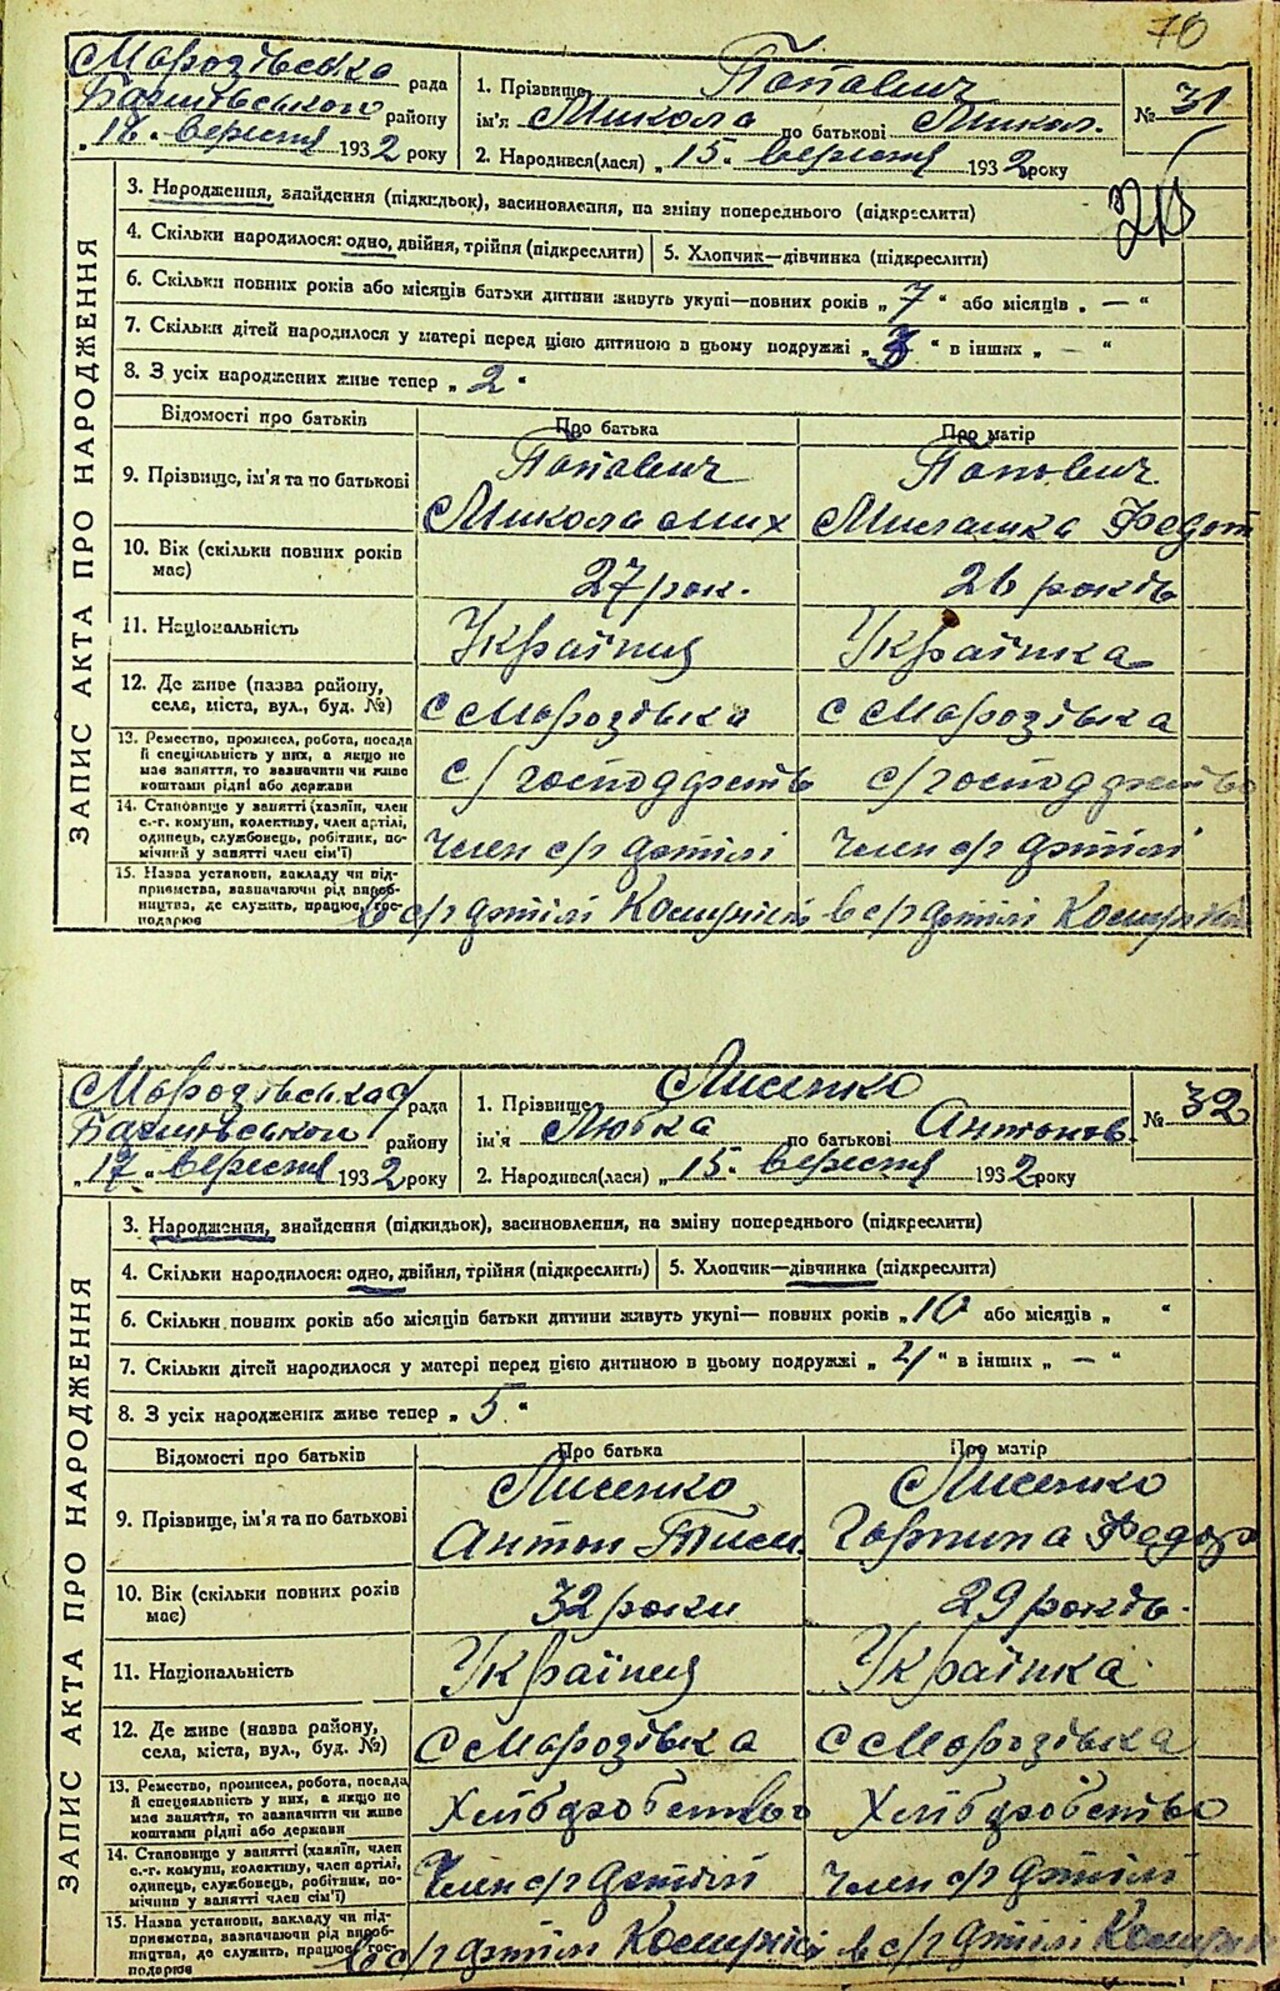 70
Морозівська рада
Баштівського району
„18“ вересня 1932 року
1. Прізвище Попович
ім'я Микола по батькові Микол.
2. Народився(лася) „15“ вересня 1932 року
№ 31
ЗАПИС АКТА ПРО НАРОДЖЕННЯ
3. Народження, знайдення (підкидьок), засиновлення, на зміну попереднього (підкреслити)
4. Скільки народилося: одно, двійня, трійня (підкреслити)
5. Хлопчик—дівчинка (підкреслити)
6. Скільки повних років або місяців батьки дитини живуть укупі—повних років „7“ або місяців „—“
7. Скільки дітей народилося у матері перед цією дитиною в цьому подружжі „3“ в інших „—“
8. З усіх народжених живе тепер „2“
Відомості про батьків
Про батька
Про матір
9. Прізвище, ім'я та по батькові
Попович
Микола Мих
Попович
Федот
10. Вік (скільки повних років має)
27 рок.
26 років
11. Національність
Українця
Українка
12. Де живе (назва району,
села, міста, вул., буд. №)
с Морозівка
с Морозівка
13. Ремество, промисел, робота, посада
й спеціяльність у них, а якщо не
має заняття, то зазначити чи живе
коштами рідні або держави
с/господарство
с/господарство
14. Становище у занятті (хазяїн, член
с.-г. комуни, колективу, член артілі,
одинець, службовець, робітник, по-
мічний у занятті член сім'ї)
Член с/г артілі
Член с/г артілі
15. Назва установи, закладу чи під-
приємства, зазначаючи рід вироб-
ництва, де служить, працює, гос-
подарює
в с/г артілі
в с/г артілі
Морозівська рада
Баштівського району
„17“ вересня 1932 року
1. Прізвище Лисенко
ім'я Любка по батькові Антонов.
2. Народився(лася) „15“ вересня 1932 року
№ 32
ЗАПИС АКТА ПРО НАРОДЖЕННЯ
3. Народження, знайдення (підкидьок), засиновлення, на зміну попереднього (підкреслити)
4. Скільки народилося: одно, двійня, трійня (підкреслить)
5. Хлопчик—дівчинка (підкреслити)
6. Скільки повних років або місяців батьки дитини живуть укупі— повних років „10 або місяців „ “
7. Скільки дітей народилося у матері перед цією дитиною в цьому подружжі „4“ в інших „—“
8. З усіх народжених живе тепер „5“
Відомості про батьків
Про батька
Про матір
9. Прізвище, ім'я та по батькові
Лисенко
Антон Тисм.
Лисенко
Горпина Федор
10. Вік (скільки повних років має)
32 роки
29 років.
11. Національність
Українця
Українка
12. Де живе (назва району,
села, міста, вул., буд. №)
с Морозівка
с Морозівка
13. Ремество, промисел, робота, посада
й спецовяльність у них, а якщо не
має заняття, то зазначити чи живе
коштами рідні або держави
Хлібдробство
Хлібдробство
14. Становище у занятті (хазяїн, член
с.-г. комуни, колективу, член артілі,
одинець, службовець, робітник, по-
мічник у занятті член сім'ї)
Член с/г артілі
Член с/г артілі
15. Назва установи, закладу чи під-
приємства, зазначаючи рід вироб-
ництва, де служить, працює, гос-
подарює
в с/г артілі
в с/г артілі